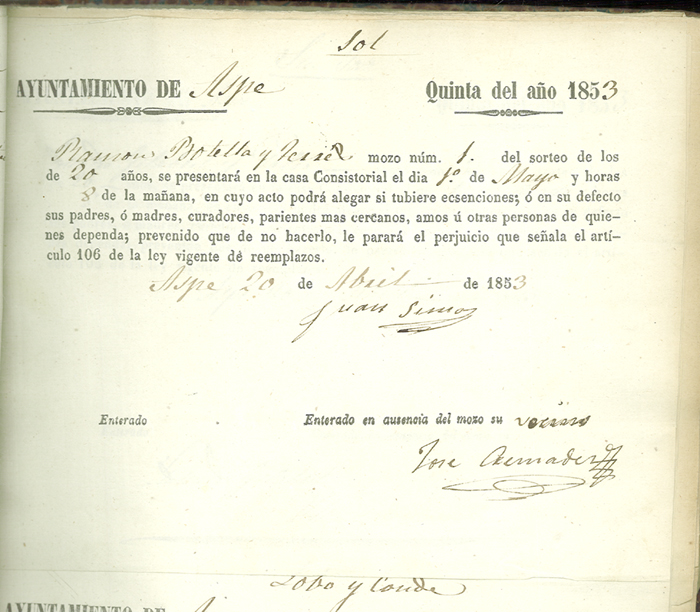 Sol
AYUNTAMIENTO DE Aspe Quinta del año 1853
Ramon Botella y mozo núm. 1. del sorteo de los
de 20 años, se presentará en la casa Consistorial el dia 1.º de Mayo y horas
8 de la mañana, en cuyo acto podrá alegar si tubiere ecsenciones; ó en su defecto
sus padres, ó madres, curadores, parientes mas cercanos, amos ú otras personas de quie-
nes dependa; prevenido que de no hacerlo, le parará el perjuicio que señala el artí-
culo 106 de la ley vigente de reemplazos.
Aspe 20 de Abril de 1853
Juan Simon
Enterado Enterado en ausencia del mozo su vecino
Jose
Lobo y Conde
AYUNTAMIENTO DE